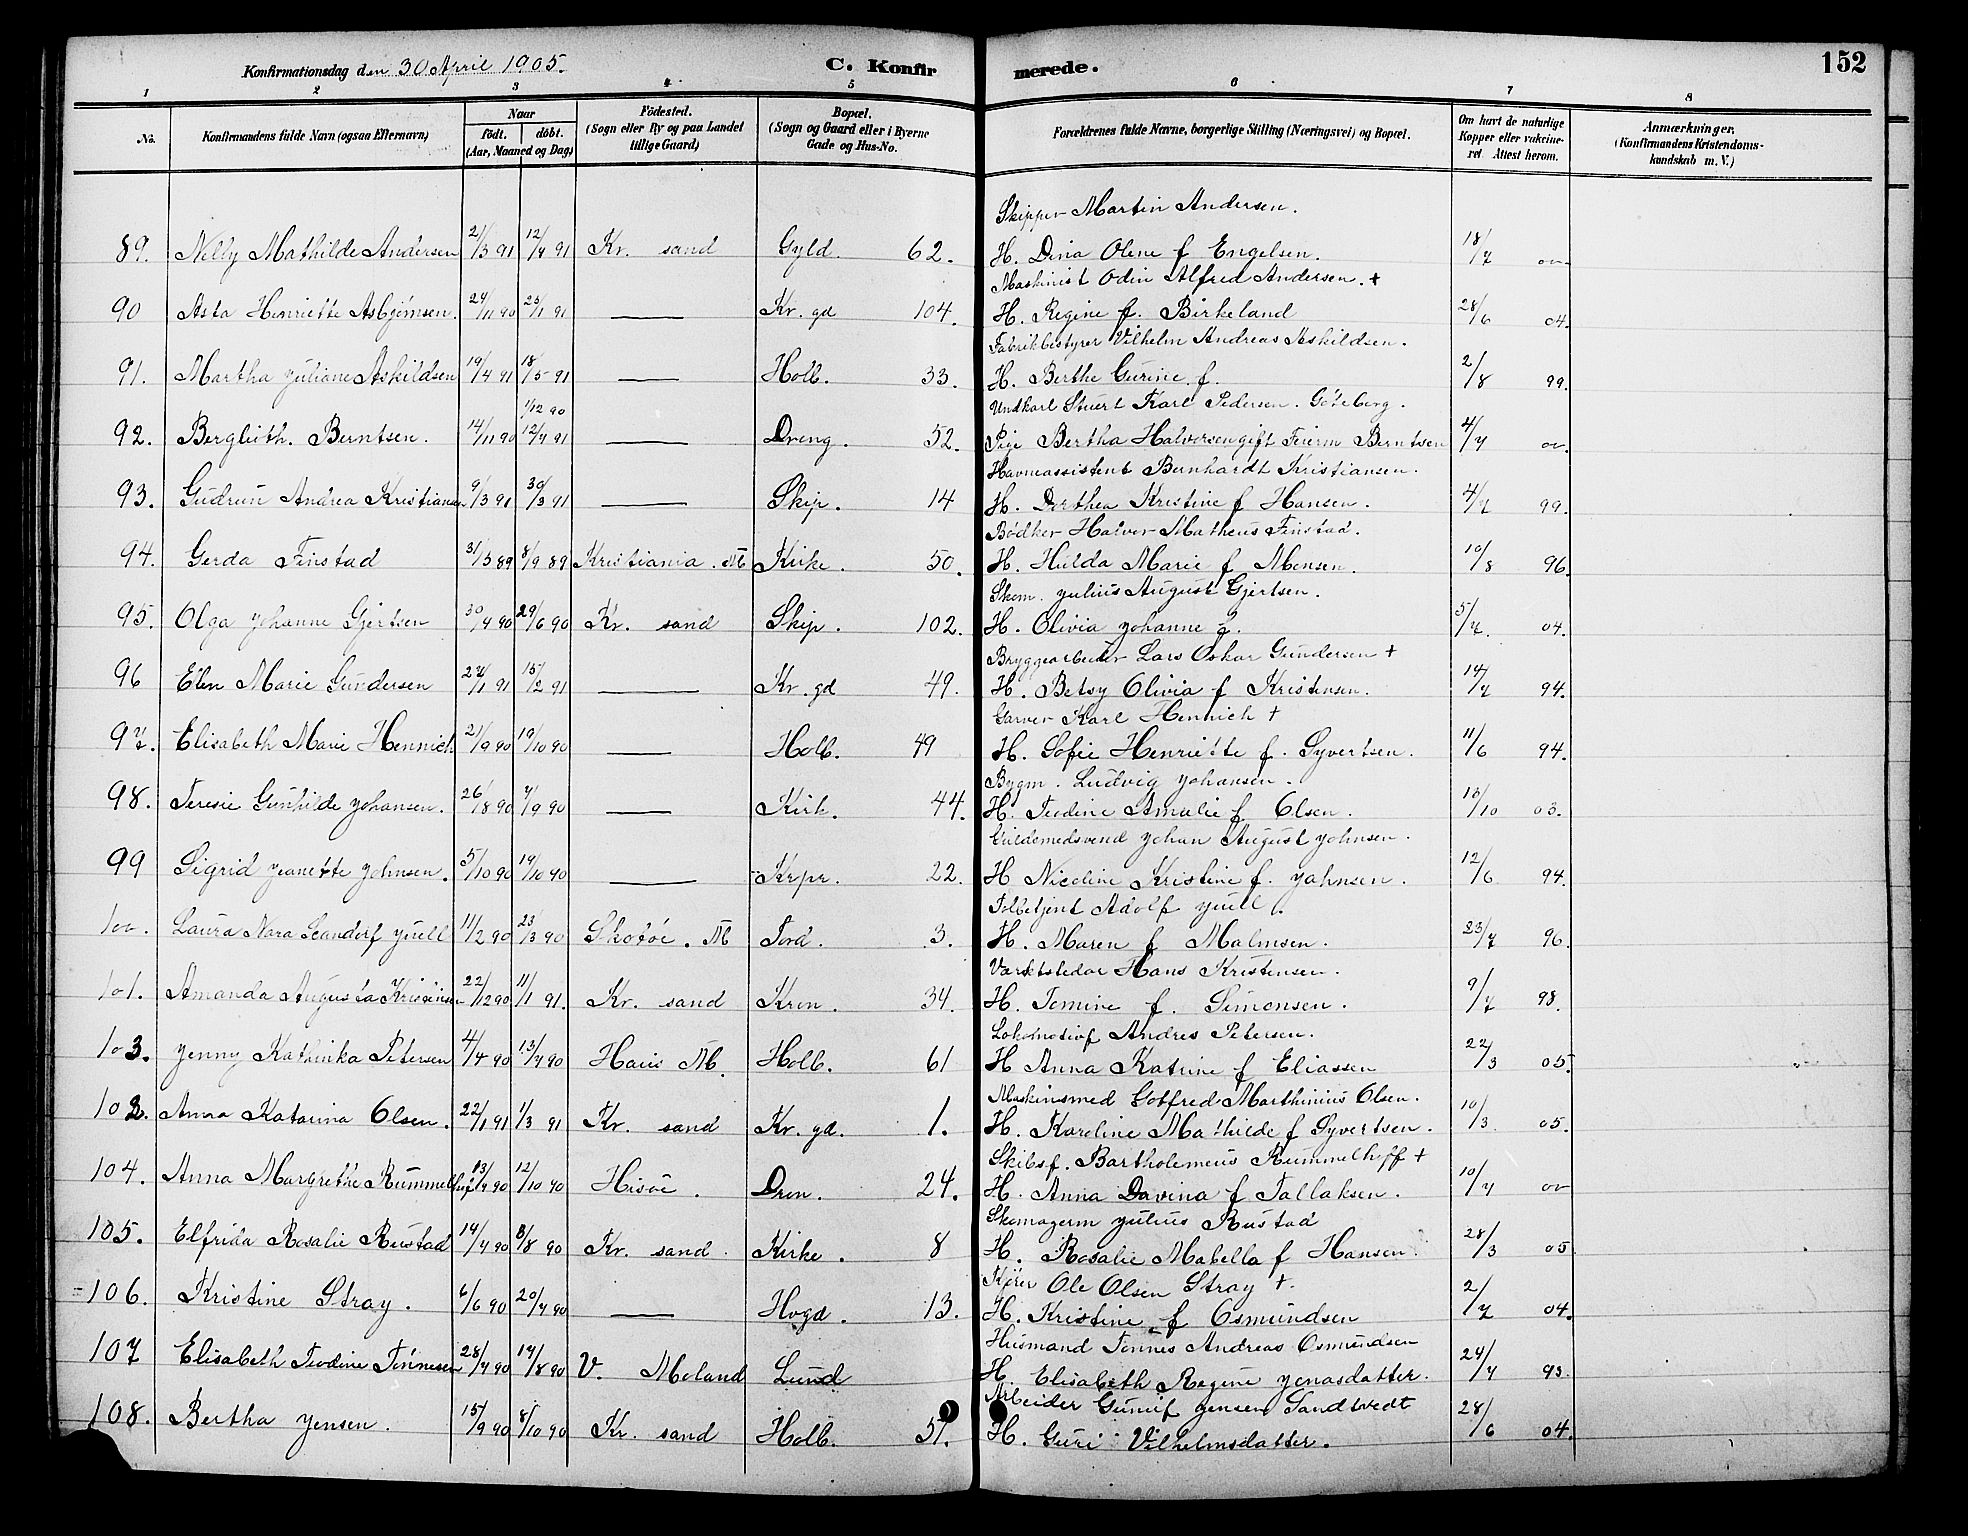 Konfirmationsdag den 30 April 1905. C. Konfirmerede. 152
1 2 3 4 5 6 7 8
No. Konfirmandens fulde Navn (ogsaa Efternavn) Naar födt. döbt. (Aar, Maaned og Dag) Födested. (Sogn eller By og paa Landet tillige Gaard) Bopæl. (Sogn og Gaard eller i Byerne Gade og Hus-No. Forældrenes fulde Navne, borgerlige Stilling (Næringsvei) og Bopæl. Om havt de naturlige Kopper eller vakcineret. Attest herom. Anmærkninger, (Konfirmandens Kristendomskundskab m. V.)
Skipper Martin Andersen.
89. Nelly Mathilde Andersen 21/3 91 12/4 91 Kr. sand Gyld. 62. H. Dina Olene f Engelsen. 18/7 00
Maskinist Odin Alfred Andersen. +
90 Asta Henriette Asbjørnsen. 24/11 90 23/1 91 — Kr. gd 104. H. Regine f. Birkeland 28/6 04.
Fabrikbestyrer Vilhelm Andreas Askildsen.
91. Martha Juliane Askildsen 19/4 91 18/5 91 — Holb. 33. H. Berthe Gurine f. 2/8 99.
1/12 90 Undkarl Stuert Karl Pedersen. Göteborg.
92. Bergliuth. Berntsen. 14/11 90 12/4 91 — Dreng. 52. Pige Bertha Halversen gift Feierm Berntsen 4/7 00.
Havneassistent Bernhardt Kristiansen.
93. Gudrun Andrea Kristiansen 9/3 91 30/3 91 — Skip. 14 H. Dorthea Kristine f Hansen. 4/7 99.
Bødker Halvor Matheus Finstad.
94. Gerda Finstad 31/3 89 8/9 89 Kristiania. M Kirke. 50. H. Hulda Marie f Monsen. 10/8 96.
Skom. Julius August Gjertsen.
95. Olga Johanne Gjertsen 30/4 90 29/6 90 Kr. sand Skip. 102. H. Olivia Johanne f. 5/7. 04.
Bryggearbeider Lars Oskar Gundersen +
96 Elen Marie Gundersen 27/1 91 15/2 91 — Kr. gd 49. H. Betsy Olivia f Kristensen. 14/7 94.
Garver Karl Hennich +
97. Elisabeth Marie Hennich. 21/9 90 19/10 90 — Holb. 49 H. Sofie Henriette f. Syvertsen. 11/6 94.
Bygm. Ludvig Johansen.
98. Teresie Gunhilde Johansen. 26/8 90 7/9 90 — Kirk. 44. H. Teodine Amalie f Olsen. 10/10 03.
Guldsmedsvend Johan August Johnsen.
99 Sigrid Jeanette Johnsen. 5/10 90 19/10 90 — Krpr. 22. H Nicoline Kristine f. Johnsen. 12/6 94.
Tolbetjent Adolf Juell.
100. Laura Nora Leandorf Juell 11/2 90 23/3 90 Skotøe. M Tord. 3. H. Maren f Malmsen. 23/7 96.
Hans Kristensen.
101. Amanda Augusta Kristensen 22/12 90 11/1 91. Kr. sand Kron. 34. H. Tomine f. Simonsen. 9/7 98.
Lokomotivf Andres Petersen.
103. Jenny Kathinka Petersen 4/4 90 13/4 90 M. Holb. 61 H Anna Katrine f Eliassen 22/3 05.
Maskinsmed Gotfred Marthinius Olsen.
102. Anna Katarina Olsen. 22/1 91 1/3 91 Kr. sand Kr. gd. 1. H. Karoline Mathilde f Syvertsen. 10/3 05.
Skibsf. Bartholomeus Rummelhoff +
104. Anna Margrethe Rummelhoff 13/7 90 12/10 90 Hisøe. Dron. 24. H. Anna Davina f Tallaksen. 10/7 00
Skomagerm Julius Rustad
105. Elfrida Rosalie Rustad 14/7 90 3/8 90 Kr. sand. Kirke. 8 H. Rosalie Mabella f Hansen. 28/3 05
Kjører Ole Olsen Stray +.
106. Kristine Stray. 6/6 90 20/7 90 — Hvgd. 13. H. Kristine f Osmundsen 2/7 04.
Husmand Tønnes Andreas Osmundsen
107 Elisabeth Teodine Tønnesen 28/7 90 17/8 90 V. Moland Lund H. Elisabeth Regine Jonasdatter. 24/7 93.
Arbeider Gunuf Jensen Sandtvedt
108. Bertha Jensen. 15/9 90 8/10 90 Kr. sand Holb. 51. H. Guri Vilhelmsdatter. 28/6 04.